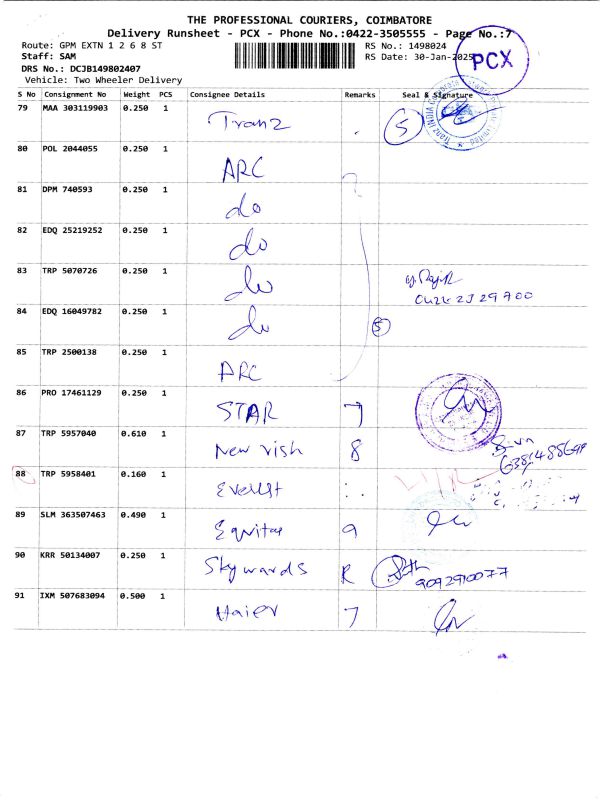 THE PROFESSIONAL COURIERS, COIMBATORE
Delivery Runsheet - PCX - Phone No.:0422-3505555 - Page No.:7
Route: GPM EXTN 1 2 6 8 ST
RS No.: 1498024
Staff: SAM
RS Date: 30-Jan-2025
PCX
DRS No.: DCJB149802407
Vehicle: Two Wheeler Delivery
S No Consignment No Weight PCS Consignee Details Remarks Seal & Signature
79 MAA 303119903 0.250 1 Tranz 5
80 POL 2044055 0.250 1 ARC
81 DPM 740593 0.250 1 do
82 EDQ 25219252 0.250 1 do
83 TRP 5070726 0.250 1 do
84 EDQ 16049782 0.250 1 do 5
85 TRP 2500138 0.250 1 ARC
86 PRO 17461129 0.250 1 STAR 7
87 TRP 5957040 0.610 1 New rish 8
88 TRP 5958401 0.160 1 Everest
89 SLM 363507463 0.490 1 Equitas 9
90 KRR 50134007 0.250 1 Skywards R 9092910077
91 IXM 507683094 0.500 1 Haier 7